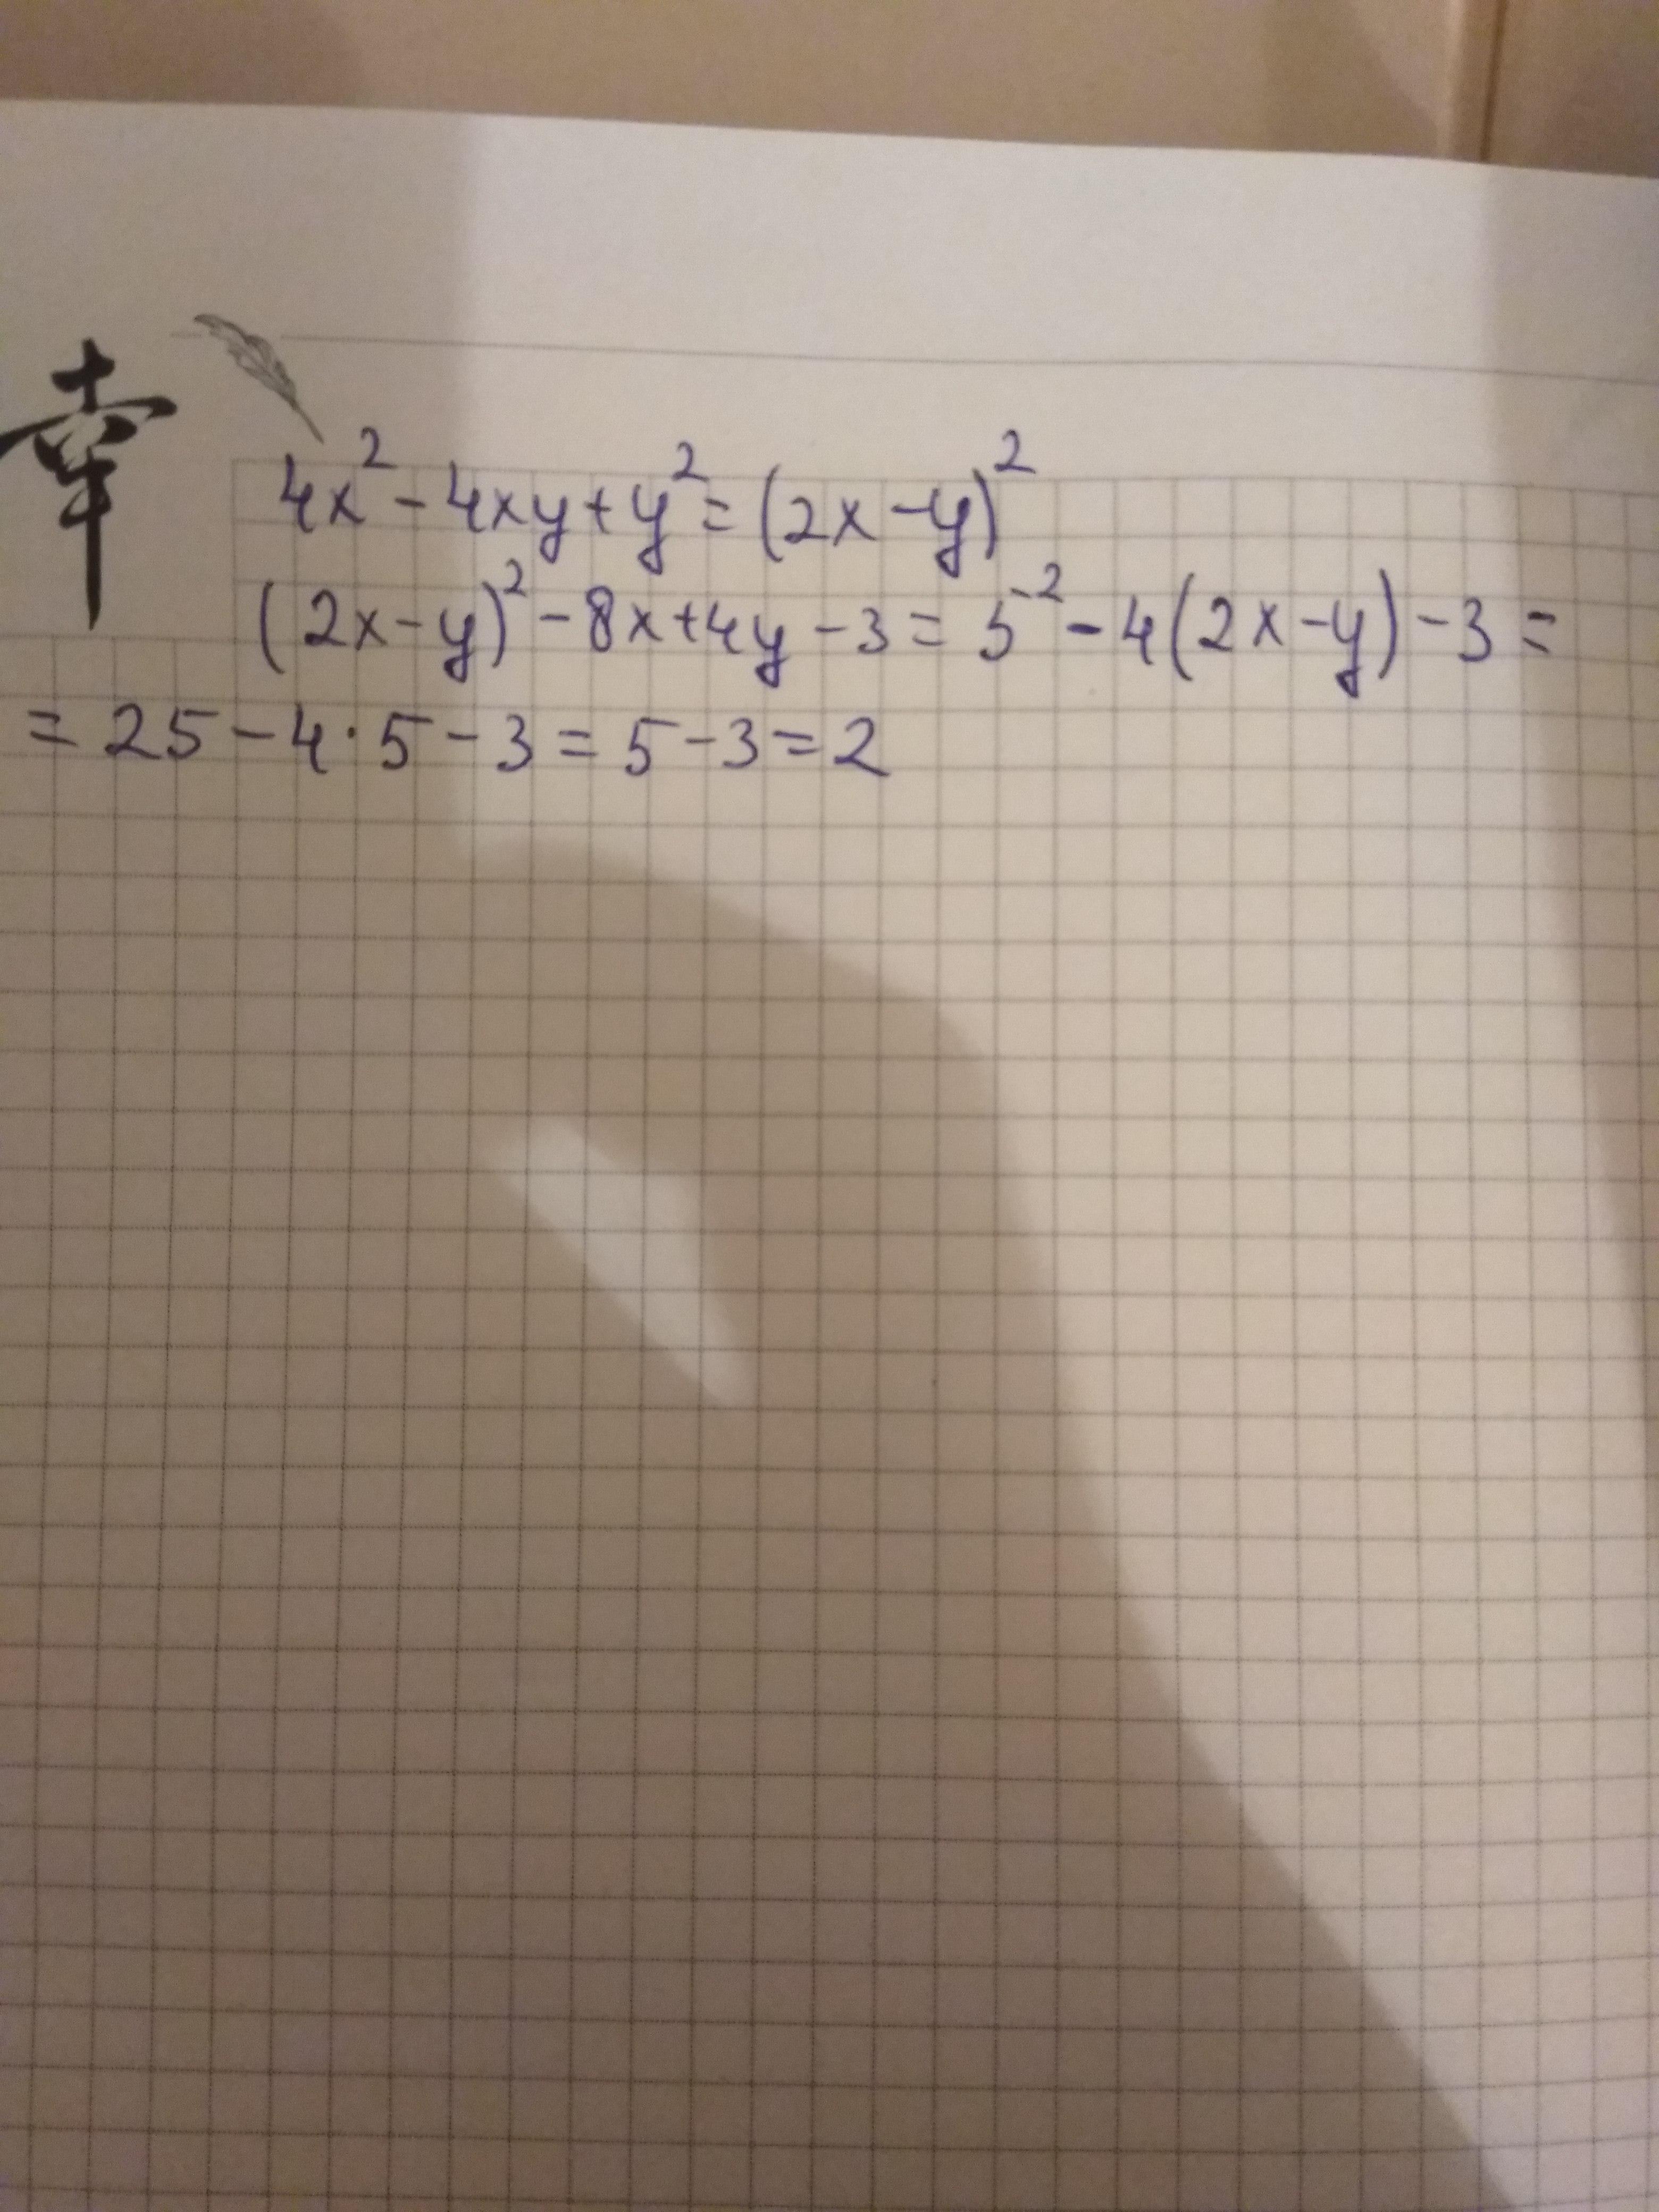 幸
4x² - 4xy + y² = (2x - y)²
(2x - y)² - 8x + 4y - 3 = 5² - 4(2x - y) - 3 =
= 25 - 4 · 5 - 3 = 5 - 3 = 2